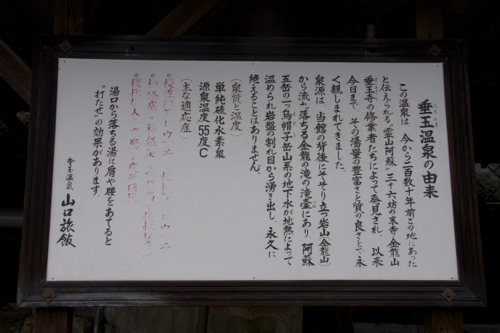 垂玉温泉の由来
この温泉は、今から二百数十年前この地にあった
と伝えられる"霊山阿蘇"三十六坊の末寺・金龍山
垂玉寺の修業者たちによって発見され、以来
今日まで、その湯量の豊富さと質の良さとで、永
く親しまれてきました。
泉源は、当館の背後にそそり立つ岩山(金龍山)
から流れ落ちる金龍の滝の滝壷にあり、阿蘇
五岳の一つ烏帽子岳山系の地下水が地熱によって
温められ岩盤の割れ目から湧き出し、永久に
絶えることはありません。
(泉質と温度)
単純硫化水素泉
源泉温度55度C
(主な適応症)
湯口から落ちる湯に肩や腰をあてると
"打たせ"の効果があります。
垂玉温泉 山口旅館